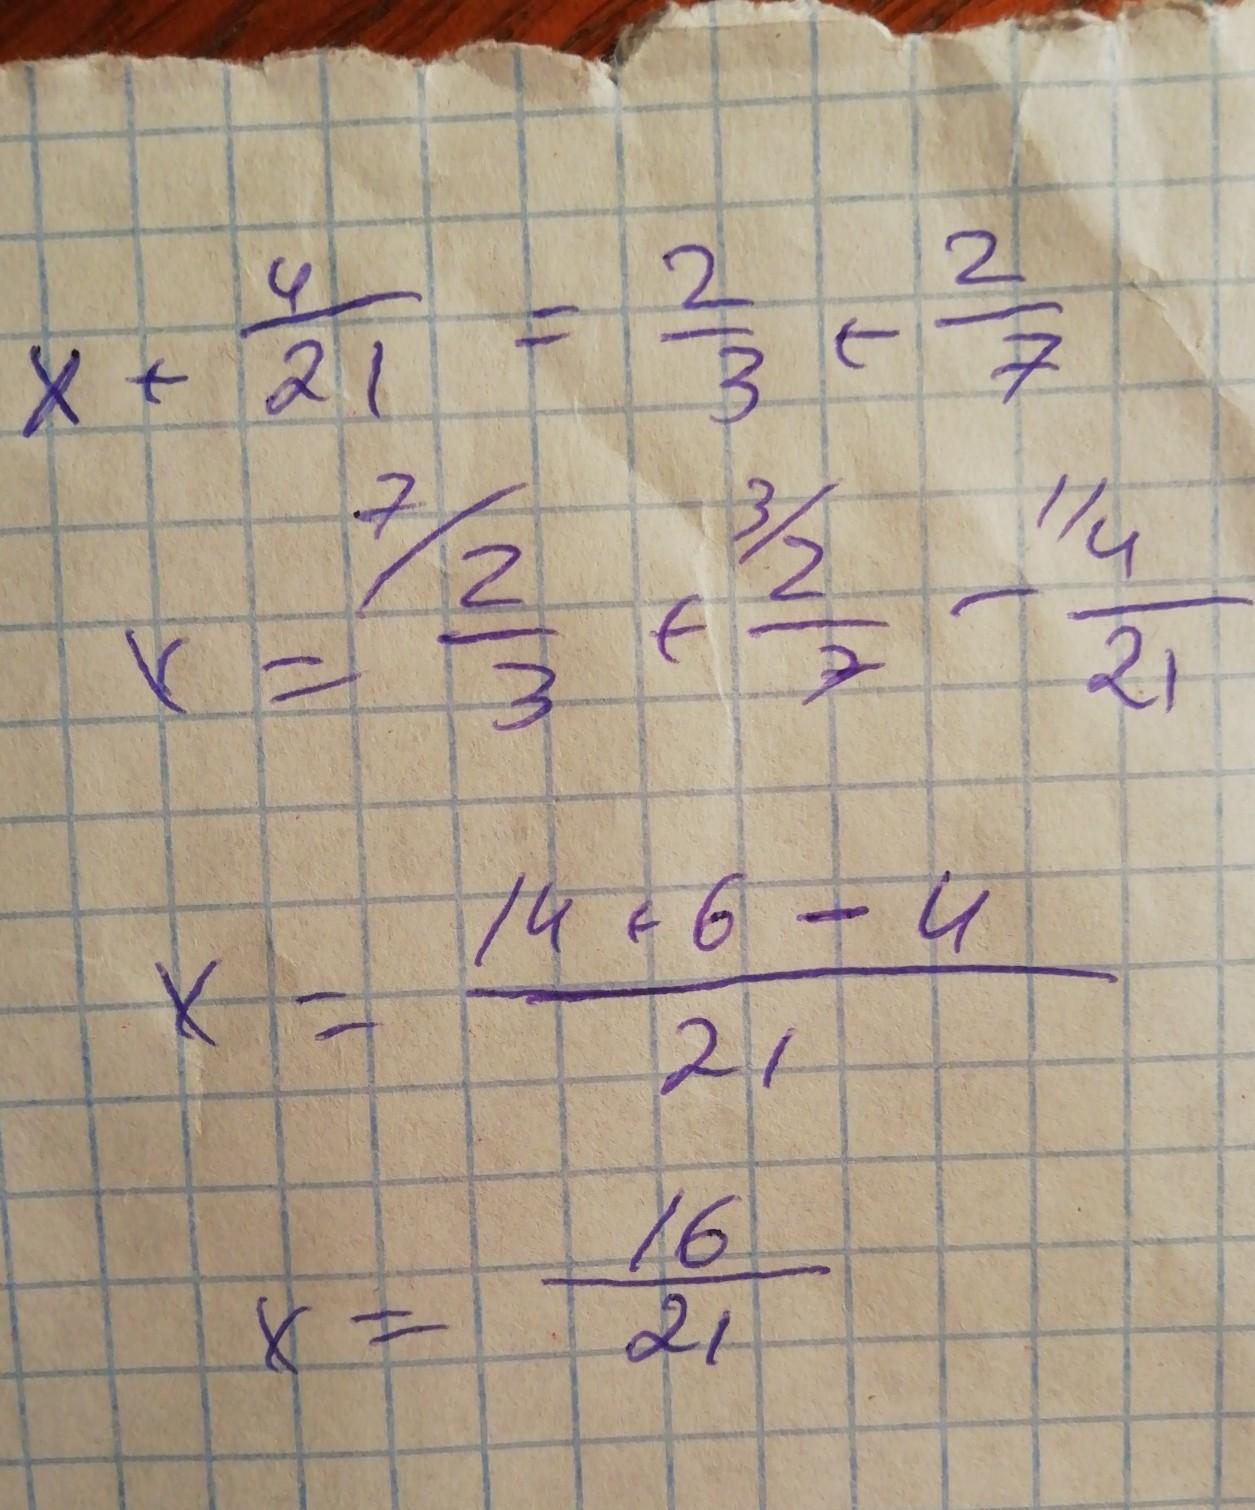 x + 4/21 = 2/3 + 2/7
x = 7/ 2/3 + 3/ 2/7 - 1/ 4/21
x = 14 + 6 - 4 / 21
x = 16/21